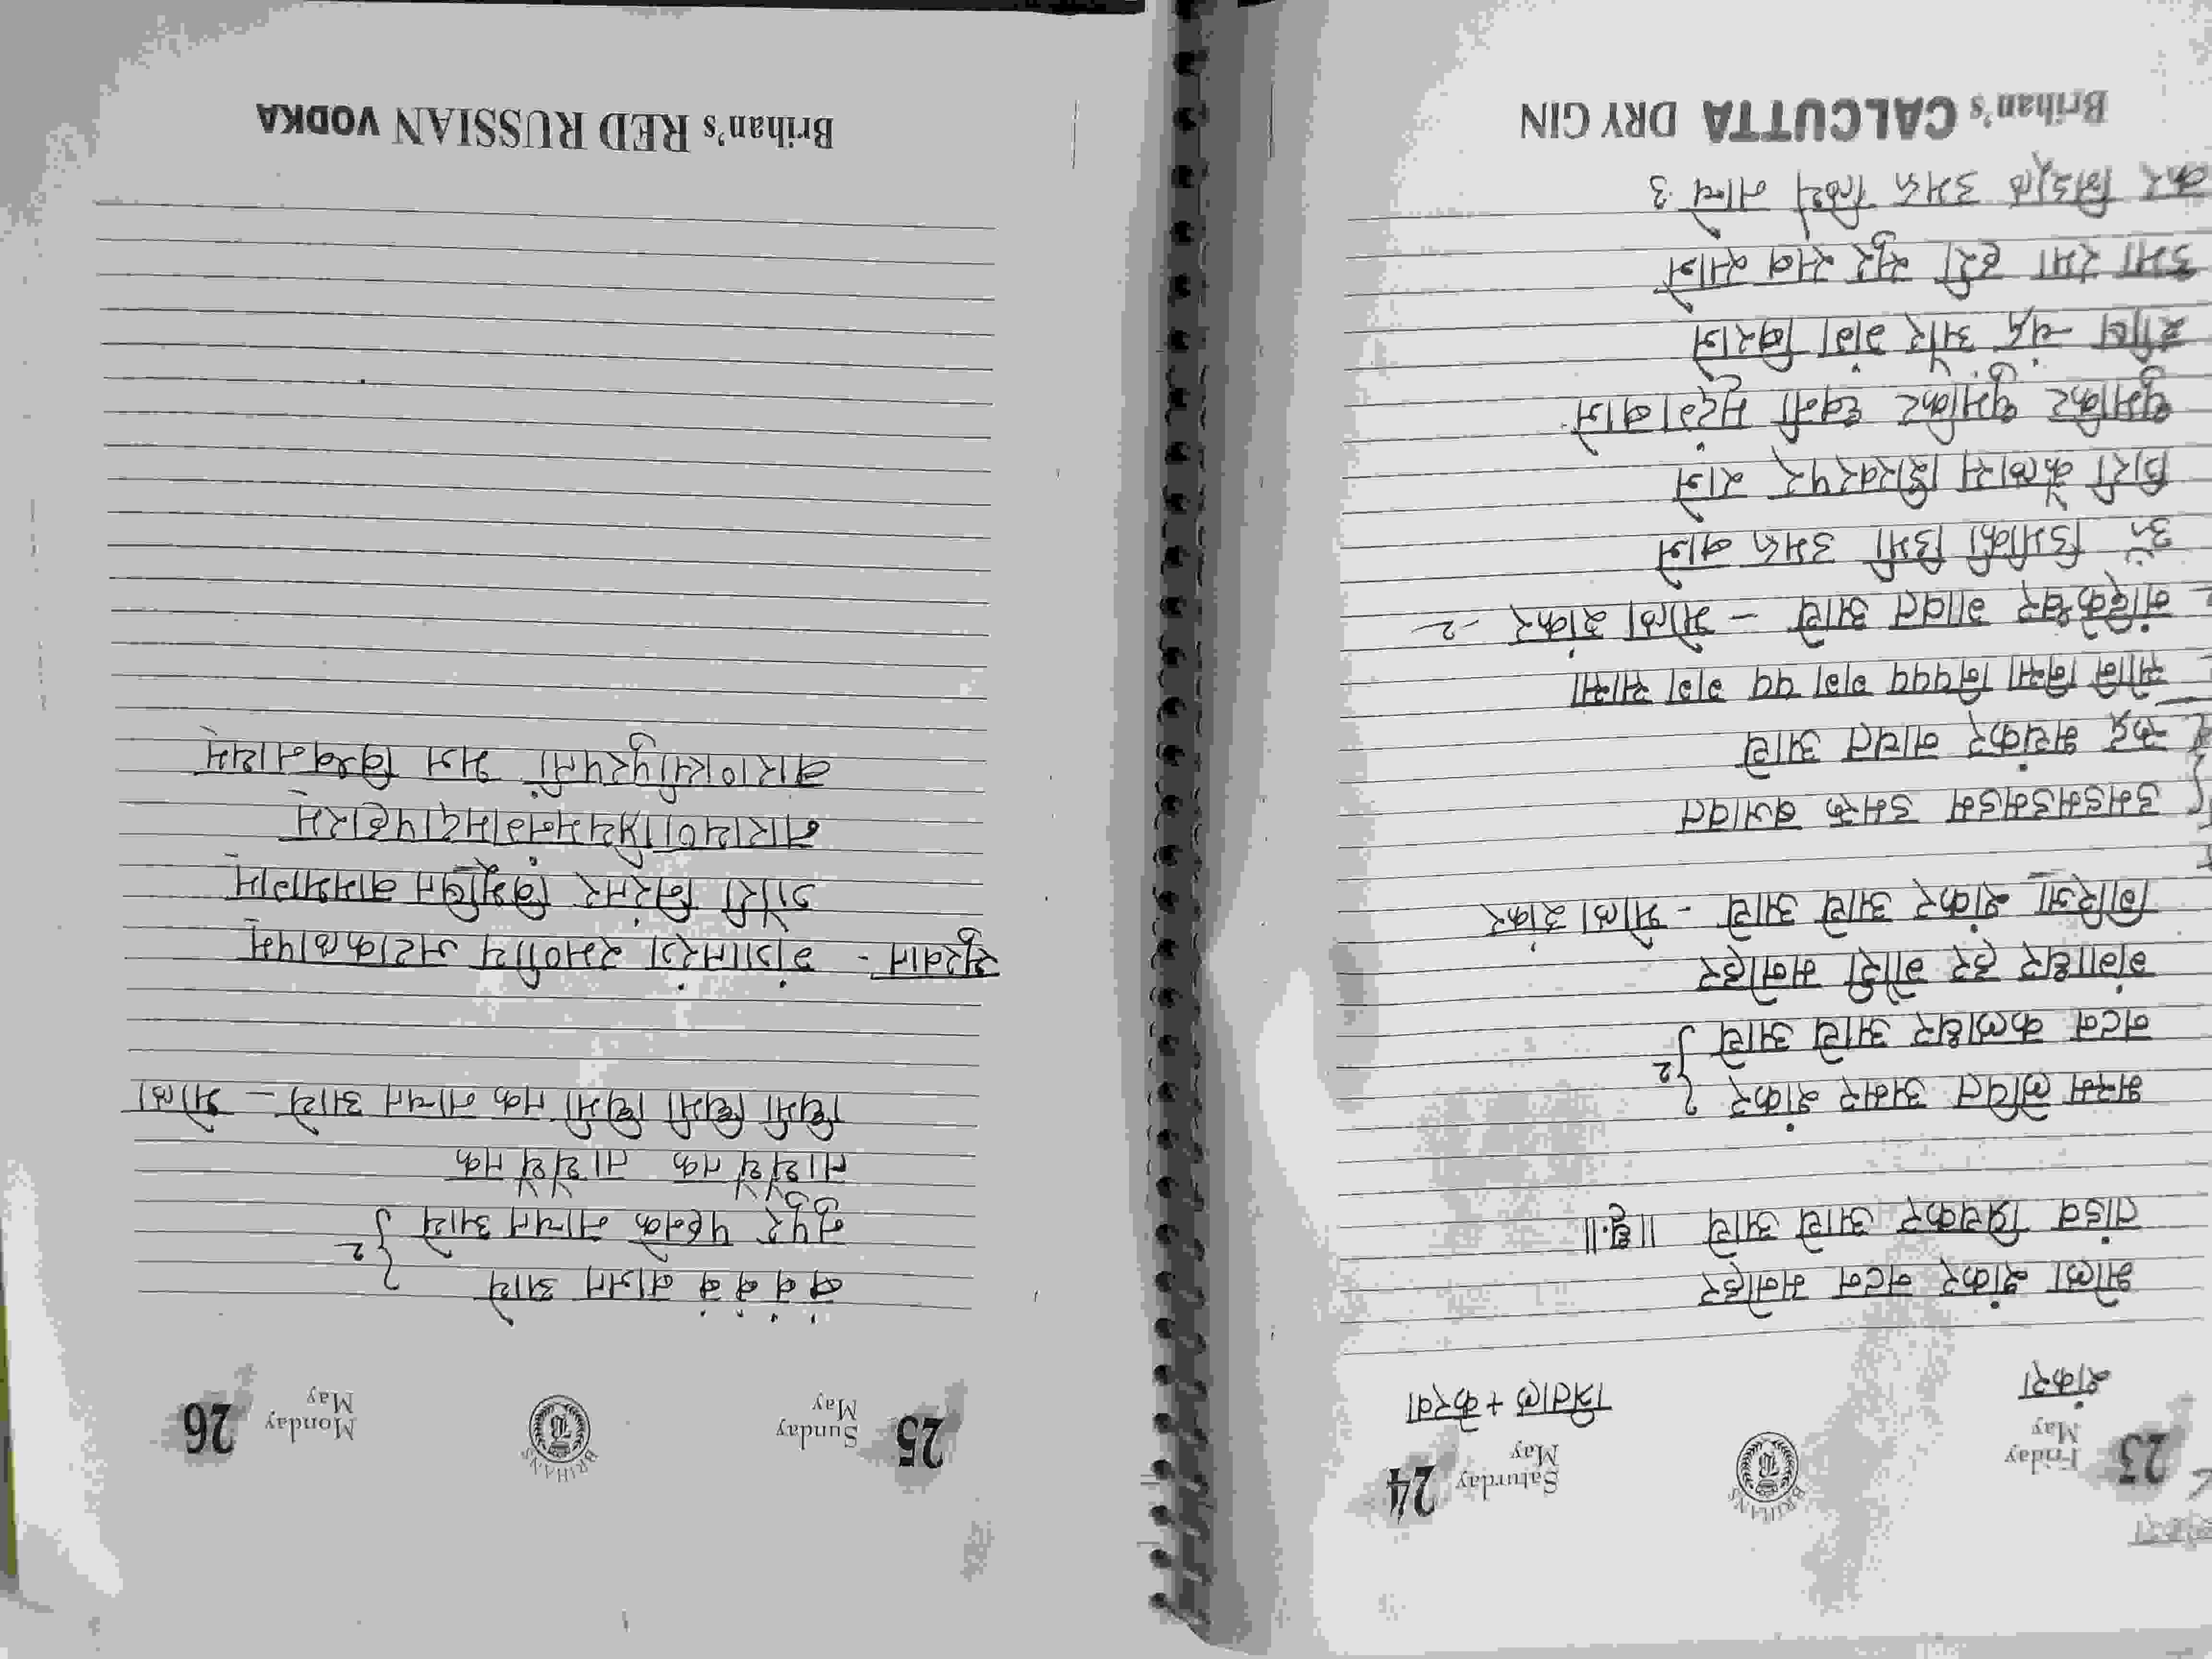 23 Friday May
BRIHANS
Saturday May 24
शंकरा
त्रिताल + केरवा
भोला शंकर नटन मनोहर
तांडव प्रियकर आये आये ॥धृ.॥
भस्म लेपित अमर शंकर
नटन कलाधर आये आये } 2
गंगाधर हर गौरी मनोहर
गिरिजा शंकर आये आये - भोला शंकर
डमडमडमडम डमरू बजावत
रूद्र भयंकर नाचत आये
सांनि निसा निपपप गग पप गग सासा
नंदिकेश्वर गावत आये - भोला शंकर -२
ॐ डिमीकी डिमी डमरू बाजे
गिरी कैलास शिखरपर राजे
धुमकिट धुमकिट ध्वनी मृदंग बाजे
शीष चंद्र और गंग बिराजे
उमा रमा हरी सुर सब साजे
कर त्रिशूल डमरू लिये नाचे
Brihan's CALCUTTA DRY GIN
25 Sunday May
BRIHANS
Monday May 26
बं बं बं बं बाजत आये
नुपुर पहनके नाचत आये } 2
ताथैथै तक ताथैथै तक
धिमी धिमी धिमी तक नाचत आये - भोला
सुरवात - गंगातरंग रमणीय जटाकलापम्
गौरी निरंतर विभूषित वामभागम्
नारायणप्रियमनंगमदापहारम्
वाराणसीपुरपतीं भज विश्वनाथम्
Brihan's RED RUSSIAN VODKA